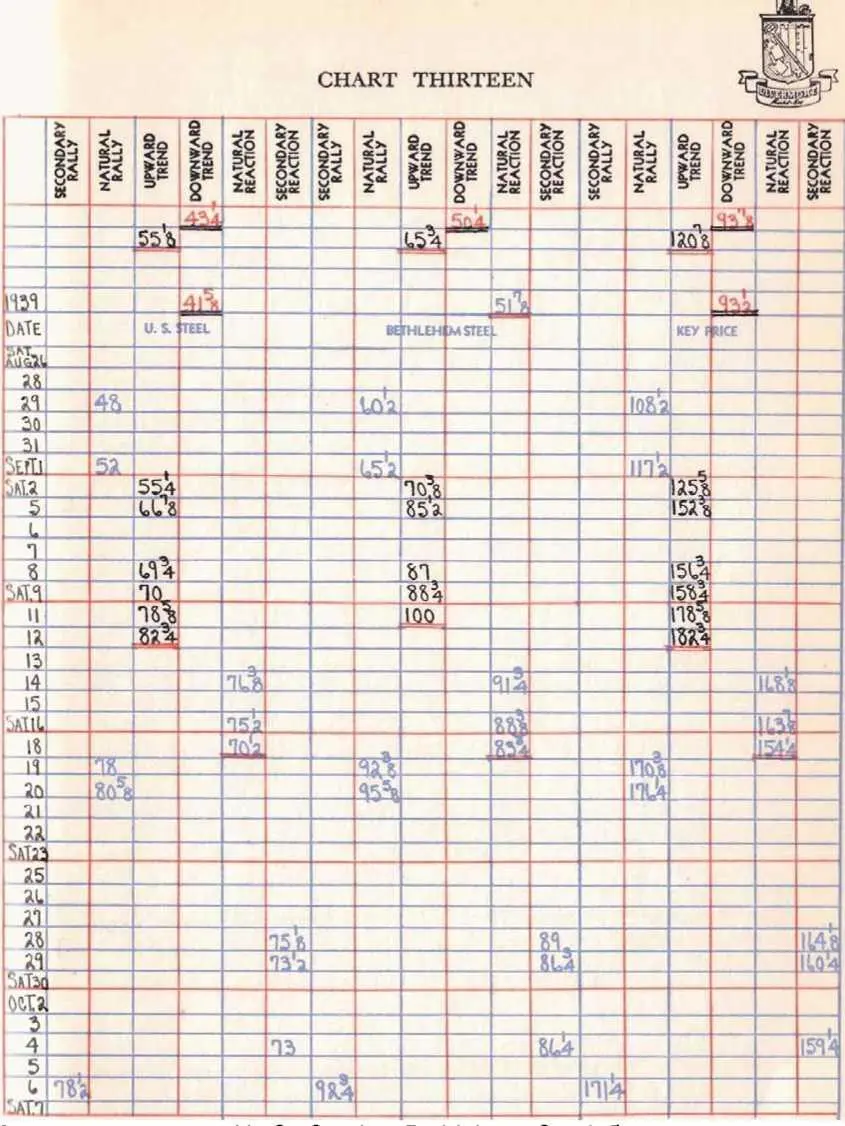 LIVERMORE
CHART THIRTEEN
SECONDARY RALLY NATURAL RALLY UPWARD TREND DOWNWARD TREND NATURAL REACTION SECONDARY REACTION SECONDARY RALLY NATURAL RALLY UPWARD TREND DOWNWARD TREND NATURAL REACTION SECONDARY REACTION SECONDARY RALLY NATURAL RALLY UPWARD TREND DOWNWARD TREND NATURAL REACTION SECONDARY REACTION
43 1/4 50 1/4 93 7/8
55 1/8 65 3/4 120 7/8
1939 41 5/8 51 7/8 93 1/2
DATE U. S. STEEL BETHLEHEM STEEL KEY PRICE
SAT. AUG 26
28
29 48 60 1/2 108 1/2
30
31
SEPT.1 52 65 1/2 117 1/2
SAT.2 55 1/4 70 3/8 125 5/8
5 66 7/8 85 1/2 152 3/8
6
7
8 69 3/4 87 156 3/4
SAT.9 70 88 3/4 158 3/4
11 78 5/8 100 178 5/8
12 82 3/4 182 3/4
13
14 76 3/8 91 3/4 168 1/8
15
SAT 16 75 1/2 88 3/8 163 7/8
18 70 1/2 83 3/4 154 1/4
19 78 92 3/8 170 3/8
20 80 5/8 95 5/8 176 1/4
21
22
SAT 23
25
26
27
28 75 1/8 89 164 1/8
29 73 1/2 86 3/4 160 1/4
SAT 30
OCT.2
3
4 73 86 1/4 159 1/4
5
6 78 1/2 92 3/4 171 1/4
SAT.7